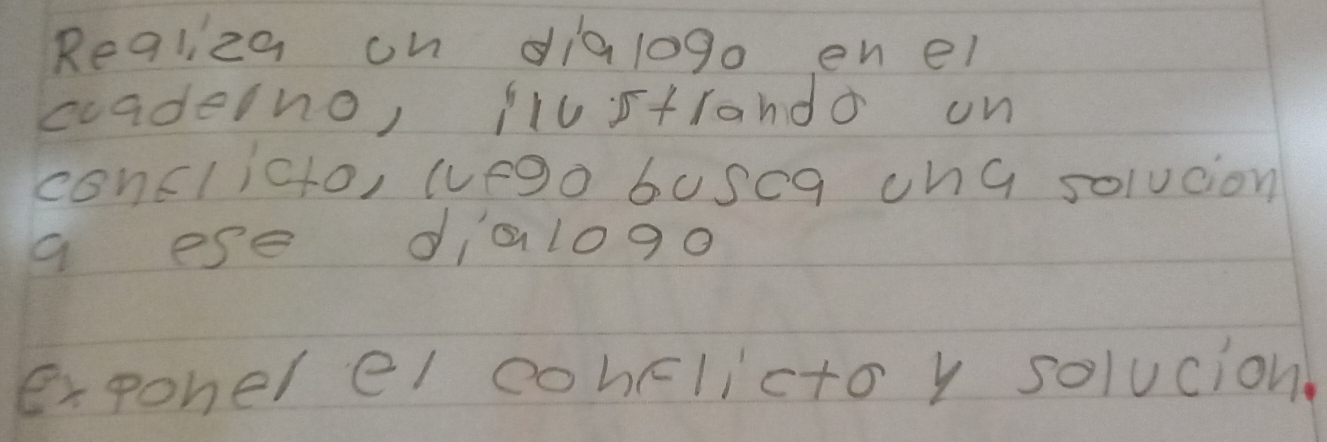 Realiza un dialogo en el
cuaderno, ilustrando un
conflicto, luego busca una solucion
a ese dialogo
exponer el conflicto y solucion.